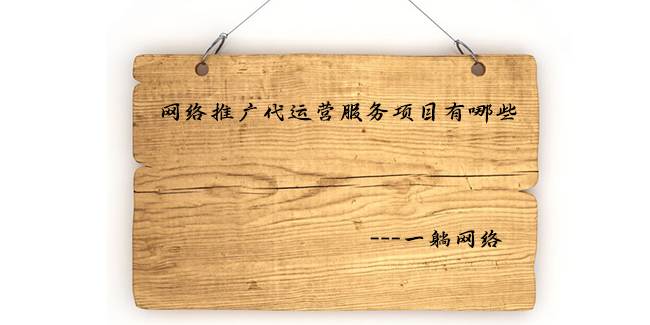 网络推广代运营服务项目有哪些
---一躺网络